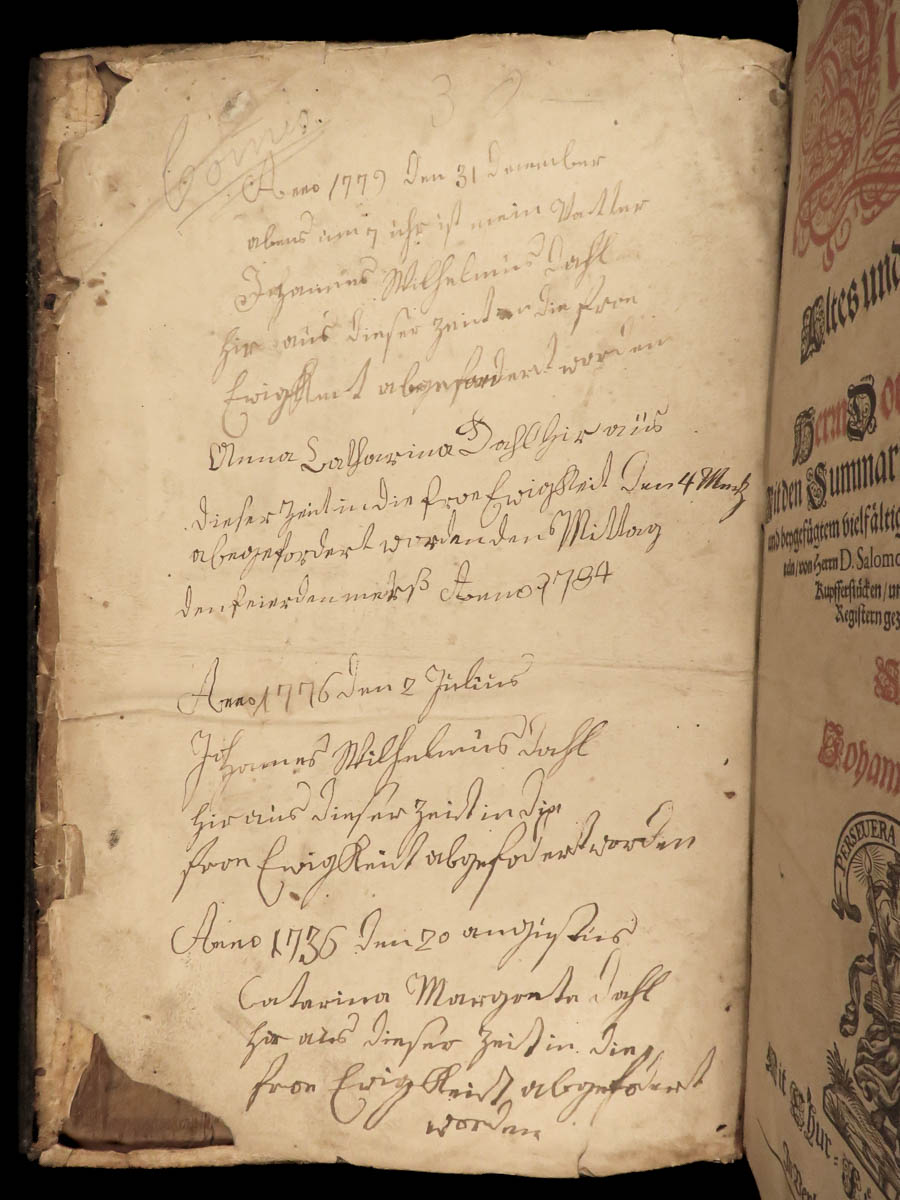 Anno 1779 den 31 December
abens um 7 uhr ist mein Vatter
Johannes Wilhelmus Dahl
hir aus dieser zeit in die froe
Ewigkeit abgefordert worden
Anna Catharina Dahl hir aus
dieser zeit in die froe Ewigkeit den 4 Mertz
abegefordert worden den Mittag
den feierden merß Anno 1784
Anno 1776 den 2 Julius
Johannes Wilhelmus Dahl
hir aus dieser zeit in die
froe Ewigkeit abgefodert worden
Anno 1736 den 20 augustus
Catarina Margreta Dahl
hir aus dieser zeit in die
froe Ewigkeit abgefodert
worden
Altes und
Herrn Do
Mit den Summar
und beygefügtem vielfältig
ten / von Herrn D. Salomo
Kupfferstücken / un
Registern gez
Johann
PERSEVERA
Mit Chur-